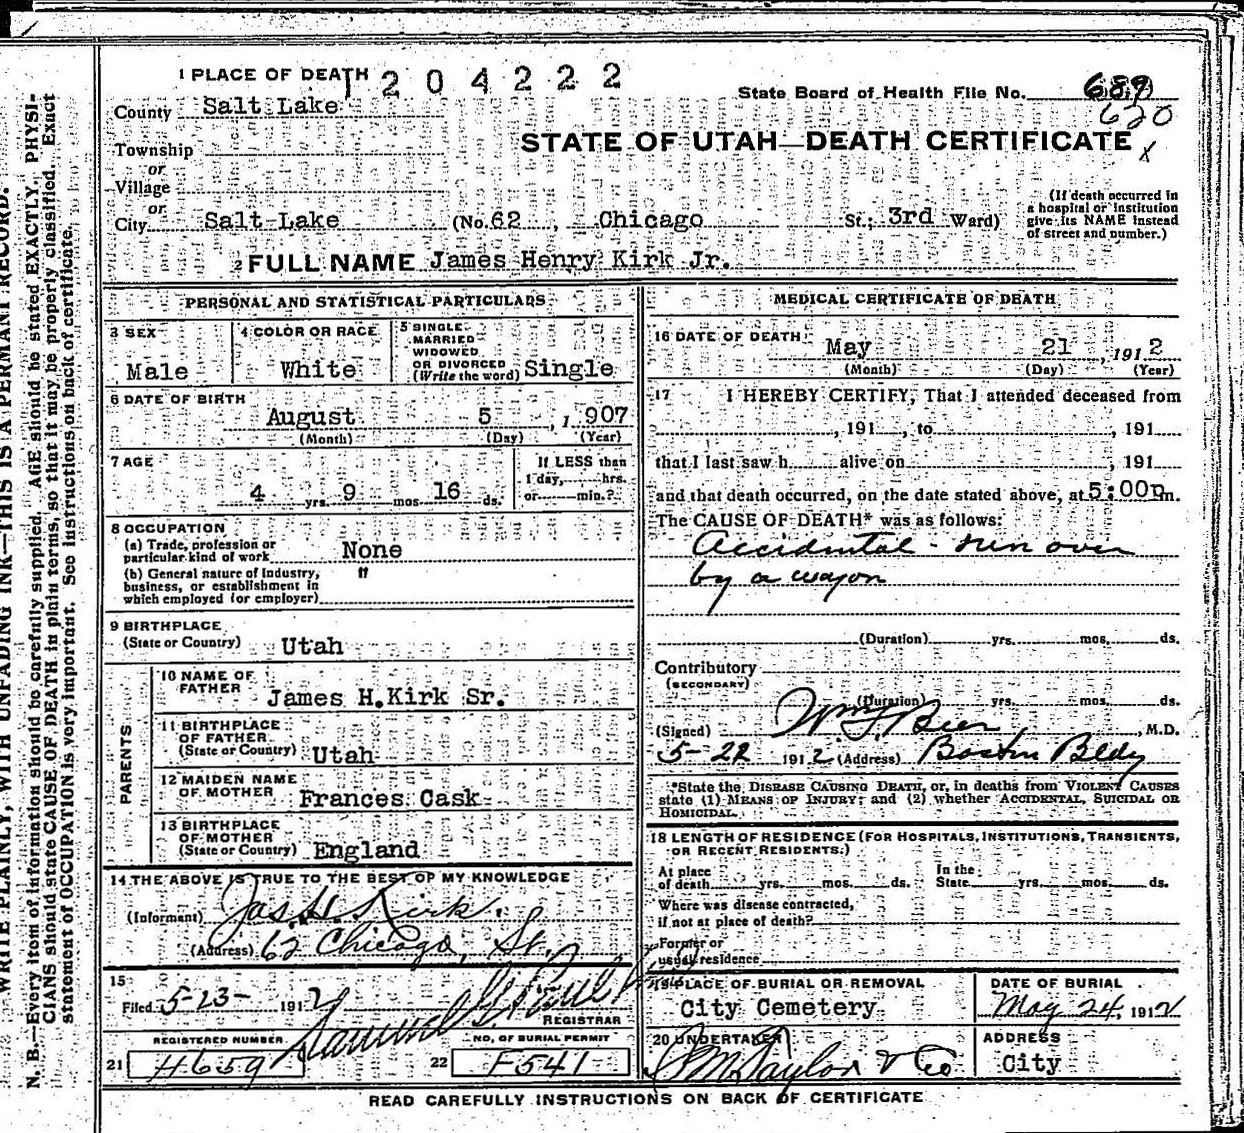 1 PLACE OF DEATH 1204222
County Salt Lake
State Board of Health File No. 689
620
Township
or
Village
or
STATE OF UTAH—DEATH CERTIFICATE
City Salt Lake (No. 62, Chicago St.; 3rd Ward)
(If death occurred in a hospital or institution give its NAME instead of street and number.)
2 FULL NAME James Henry Kirk Jr.
PERSONAL AND STATISTICAL PARTICULARS
3 SEX Male
4 COLOR OR RACE White
5 SINGLE MARRIED WIDOWED OR DIVORCED (Write the word) Single
6 DATE OF BIRTH
August 5, 1907
(Month) (Day) (Year)
7 AGE
4 yrs. 9 mos 16 ds.
If LESS than 1 day, hrs. or min.?
8 OCCUPATION
(a) Trade, profession or particular kind of work None
(b) General nature of Industry, business, or establishment in which employed (or employer) "
9 BIRTHPLACE
(State or Country) Utah
PARENTS
10 NAME OF FATHER James H. Kirk Sr.
11 BIRTHPLACE OF FATHER (State or Country) Utah
12 MAIDEN NAME OF MOTHER Frances Cask
13 BIRTHPLACE OF MOTHER (State or Country) England
14 THE ABOVE IS TRUE TO THE BEST OF MY KNOWLEDGE
(Informant) Jas. H. Kirk.
(Address) 62 Chicago, St.
15
Filed 5-23- 1912
REGISTRAR
REGISTERED NUMBER
21 H659
NO. OF BURIAL PERMIT
22 F541
MEDICAL CERTIFICATE OF DEATH
16 DATE OF DEATH May 21, 1912
(Month) (Day) (Year)
17 I HEREBY CERTIFY, That I attended deceased from
, 191 , to , 191
that I last saw h alive on , 191
and that death occurred, on the date stated above, at 5:00p m.
The CAUSE OF DEATH* was as follows:
Accidental - run over
by a wagon
(Duration) yrs. mos. ds.
Contributory
(SECONDARY)
(Duration) yrs. mos. ds.
(Signed) Wm F. Beer, M.D.
5-22 1912 (Address) Boston Bldg
*State the DISEASE CAUSING DEATH, or, in deaths from VIOLENT CAUSES
state (1) MEANS OF INJURY; and (2) whether ACCIDENTAL, SUICIDAL OR
HOMICIDAL.
18 LENGTH OF RESIDENCE (FOR HOSPITALS, INSTITUTIONS, TRANSIENTS,
OR RECENT RESIDENTS.)
At place of death yrs. mos. ds. In the State yrs. mos. ds.
Where was disease contracted,
if not at place of death?
Former or
usual residence
19 PLACE OF BURIAL OR REMOVAL
City Cemetery
DATE OF BURIAL
May 24, 1912
20 UNDERTAKER
Taylor & Co
ADDRESS
City
READ CAREFULLY INSTRUCTIONS ON BACK OF CERTIFICATE
WRITE PLAINLY, WITH UNFADING INK—THIS IS A PERMANENT RECORD.
N. B.—Every item of information should be carefully supplied. AGE should be stated EXACTLY. PHYSI-
CIANS should state CAUSE OF DEATH in plain terms, so that it may be properly classified. Exact
statement of OCCUPATION is very important. See instructions on back of certificate.